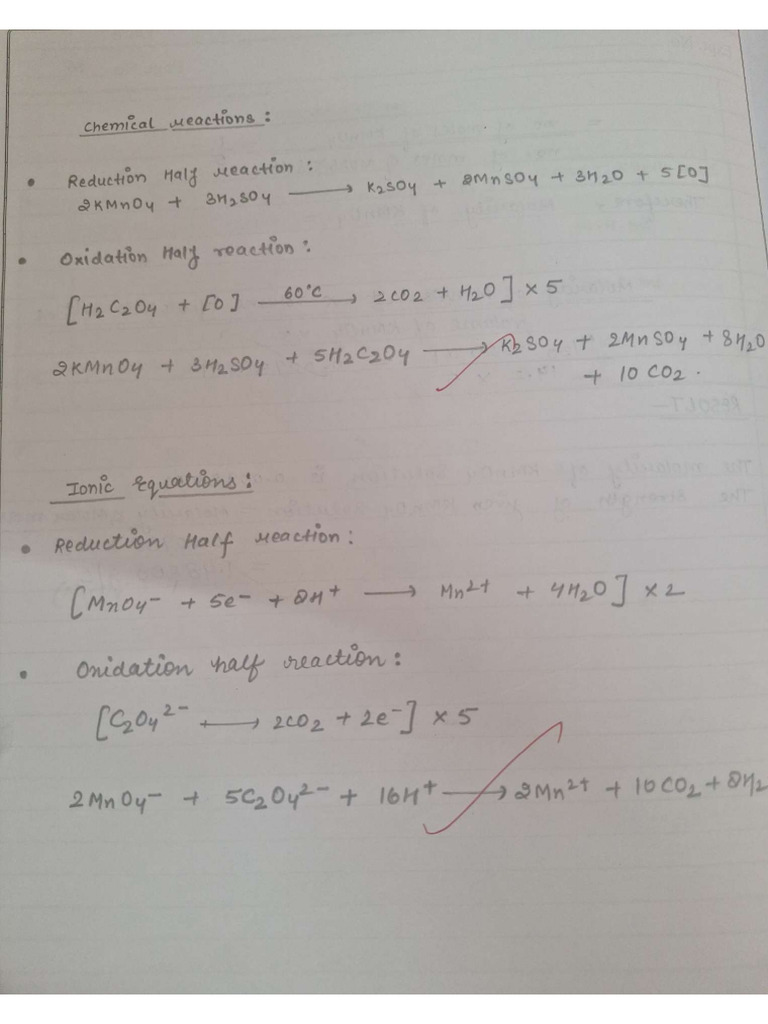 Chemical reactions :
• Reduction Half reaction :
2KMnO4 + 3H2SO4 ⟶ K2SO4 + 2MnSO4 + 3H2O + 5[O]
• Oxidation Half reaction :
[H2C2O4 + [O] 60°C⟶ 2CO2 + H2O] × 5
2KMnO4 + 3H2SO4 + 5H2C2O4 ⟶ K2SO4 + 2MnSO4 + 8H2O
+ 10 CO2 .
Ionic Equations :
• Reduction Half reaction :
[MnO4⁻ + 5e⁻ + 8H⁺ ⟶ Mn²⁺ + 4H2O] × 2
• Oxidation half reaction :
[C2O4²⁻ ⟶ 2CO2 + 2e⁻] × 5
2MnO4⁻ + 5C2O4²⁻ + 16H⁺ ⟶ 2Mn²⁺ + 10CO2 + 8H2